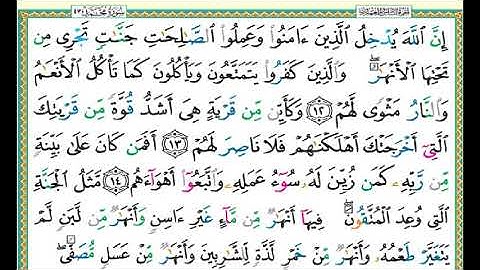 إِنَّ ٱللَّهَ يُدْخِلُ ٱلَّذِينَ ءَامَنُوا۟ وَعَمِلُوا۟ ٱلصَّـٰلِحَـٰتِ جَنَّـٰتٍ تَجْرِى مِن
تَحْتِهَا ٱلْأَنْهَـٰرُ ۖ وَٱلَّذِينَ كَفَرُوا۟ يَتَمَتَّعُونَ وَيَأْكُلُونَ كَمَا تَأْكُلُ ٱلْأَنْعَـٰمُ
وَٱلنَّارُ مَثْوًى لَّهُمْ ١٢ وَكَأَيِّن مِّن قَرْيَةٍ هِىَ أَشَدُّ قُوَّةً مِّن قَرْيَتِكَ
ٱلَّتِىٓ أَخْرَجَتْكَ أَهْلَكْنَـٰهُمْ فَلَا نَاصِرَ لَهُمْ ١٣ أَفَمَن كَانَ عَلَىٰ بَيِّنَةٍ
مِّن رَّبِّهِۦ كَمَن زُيِّنَ لَهُۥ سُوٓءُ عَمَلِهِۦ وَٱتَّبَعُوٓا۟ أَهْوَآءَهُم ١٤ مَّثَلُ ٱلْجَنَّةِ
ٱلَّتِى وُعِدَ ٱلْمُتَّقُونَ ۖ فِيهَآ أَنْهَـٰرٌ مِّن مَّآءٍ غَيْرِ ءَاسِنٍ وَأَنْهَـٰرٌ مِّن لَّبَنٍ لَّمْ
يَتَغَيَّرْ طَعْمُهُۥ وَأَنْهَـٰرٌ مِّنْ خَمْرٍ لَّذَّةٍ لِّلشَّـٰرِبِينَ وَأَنْهَـٰرٌ مِّنْ عَسَلٍ مُّصَفًّى ۖ